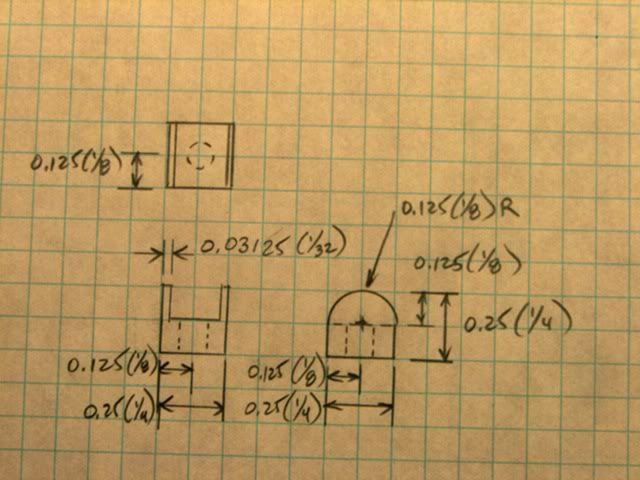 0.125(1/8)
0.125(1/8)R
0.03125(1/32)
0.125(1/8)
0.25(1/4)
0.125(1/8)
0.125(1/8)
0.25(1/4)
0.25(1/4)